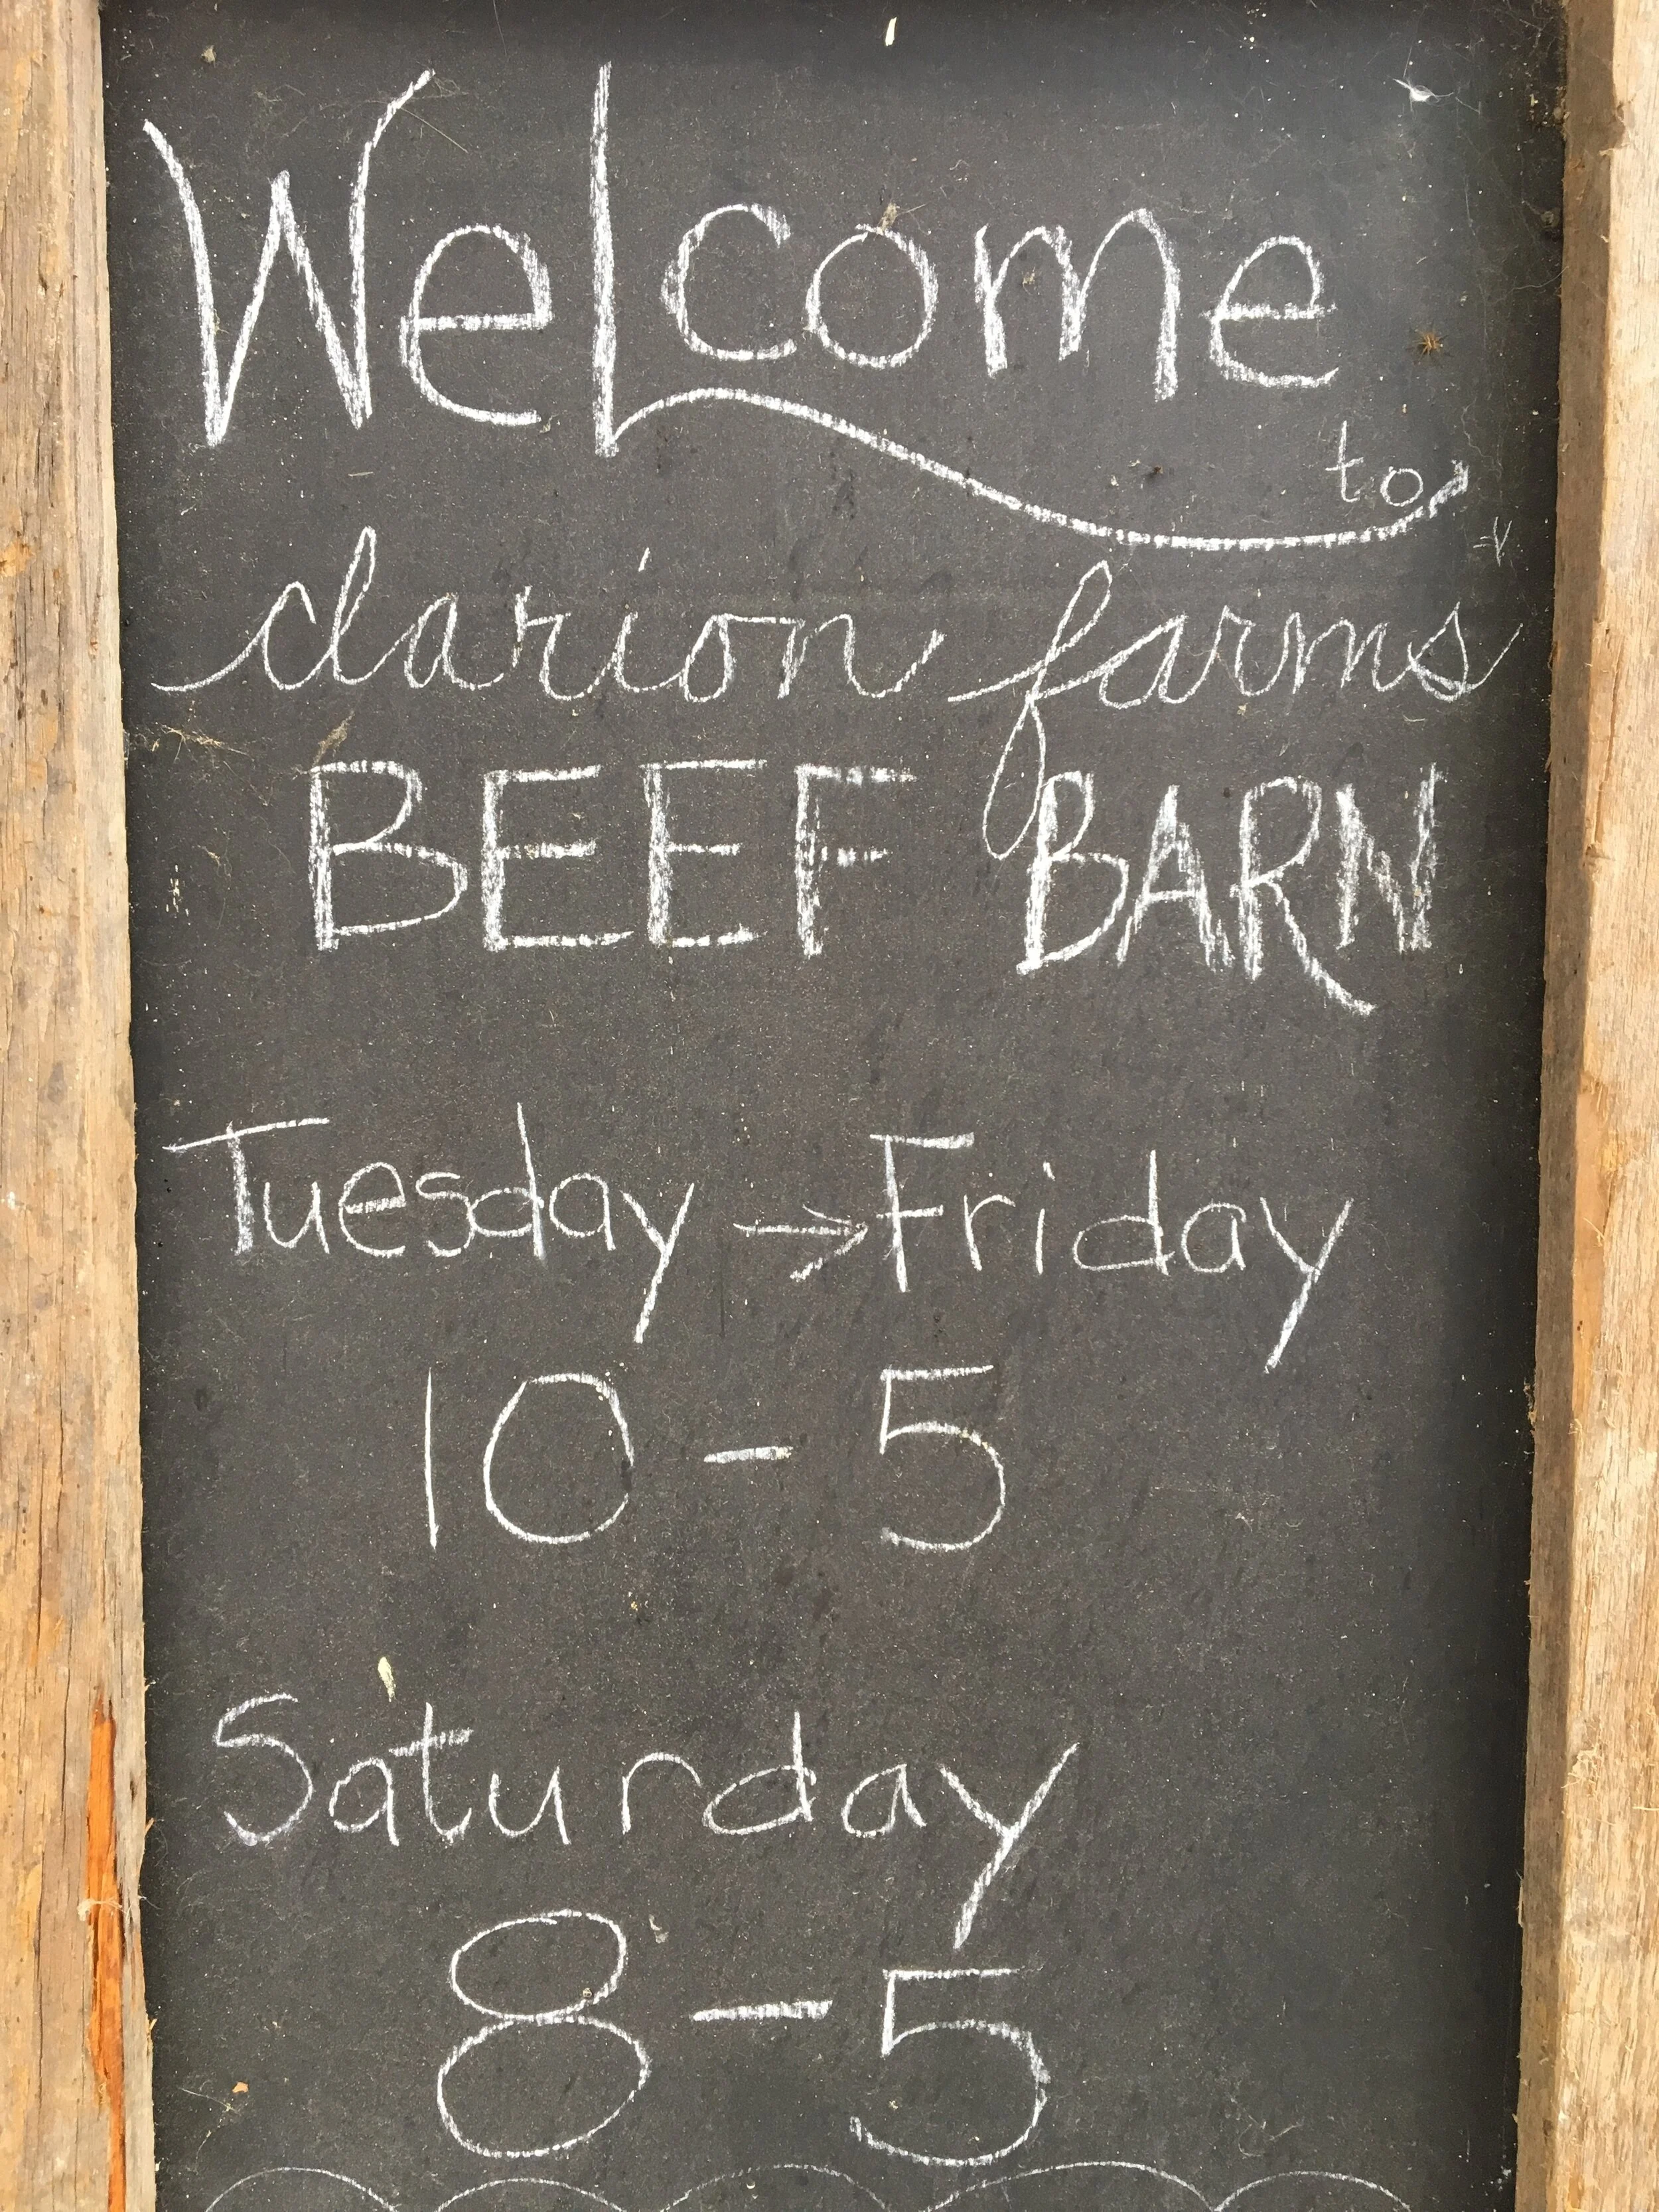 Welcome
to
clarion farms
BEEF BARN
Tuesday → Friday
10 - 5
Saturday
8 - 5